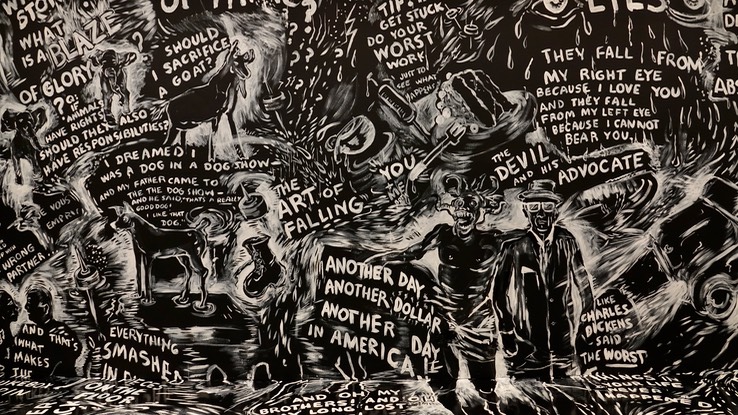 STOP
WHAT
IS A BLAZE
OF GLORY?
OF PANIC
I SHOULD
SACRIFICE
A GOAT?
TIPS
GET STUCK
DO YOUR
WORST
WORK
JUST TO
SEE WHAT
HAPPENS
EYES
THEY FALL FROM
MY RIGHT EYE
BECAUSE I LOVE YOU
AND THEY FALL
FROM MY LEFT EYE
BECAUSE I CANNOT
BEAR YOU
Q:
ANIMALS
HAVE RIGHTS
SHOULD THEY ALSO
HAVE RESPONSIBILITIES?
I DREAMED I
WAS A DOG IN A DOG SHOW
AND MY FATHER CAME TO
THE THE DOG SHOW
AND HE SAID, THAT'S A REALLY
GOOD DOG!
I LIKE THAT
DOG.
THE
ART OF
FALLING
YOU
THE
DEVIL
AND HIS
ADVOCATE
WRONG
PARTNER
ANOTHER DAY,
ANOTHER DOLLAR
ANOTHER DAY
IN AMERICA
LIKE
CHARLES
DICKENS
SAID
THE WORST
AND THAT'S
WHAT
MAKES
THE
EVERYTHING
SMASHED
FLOOR
AND OH, MY
BROTHERS AND
LONG LOST
NEVER